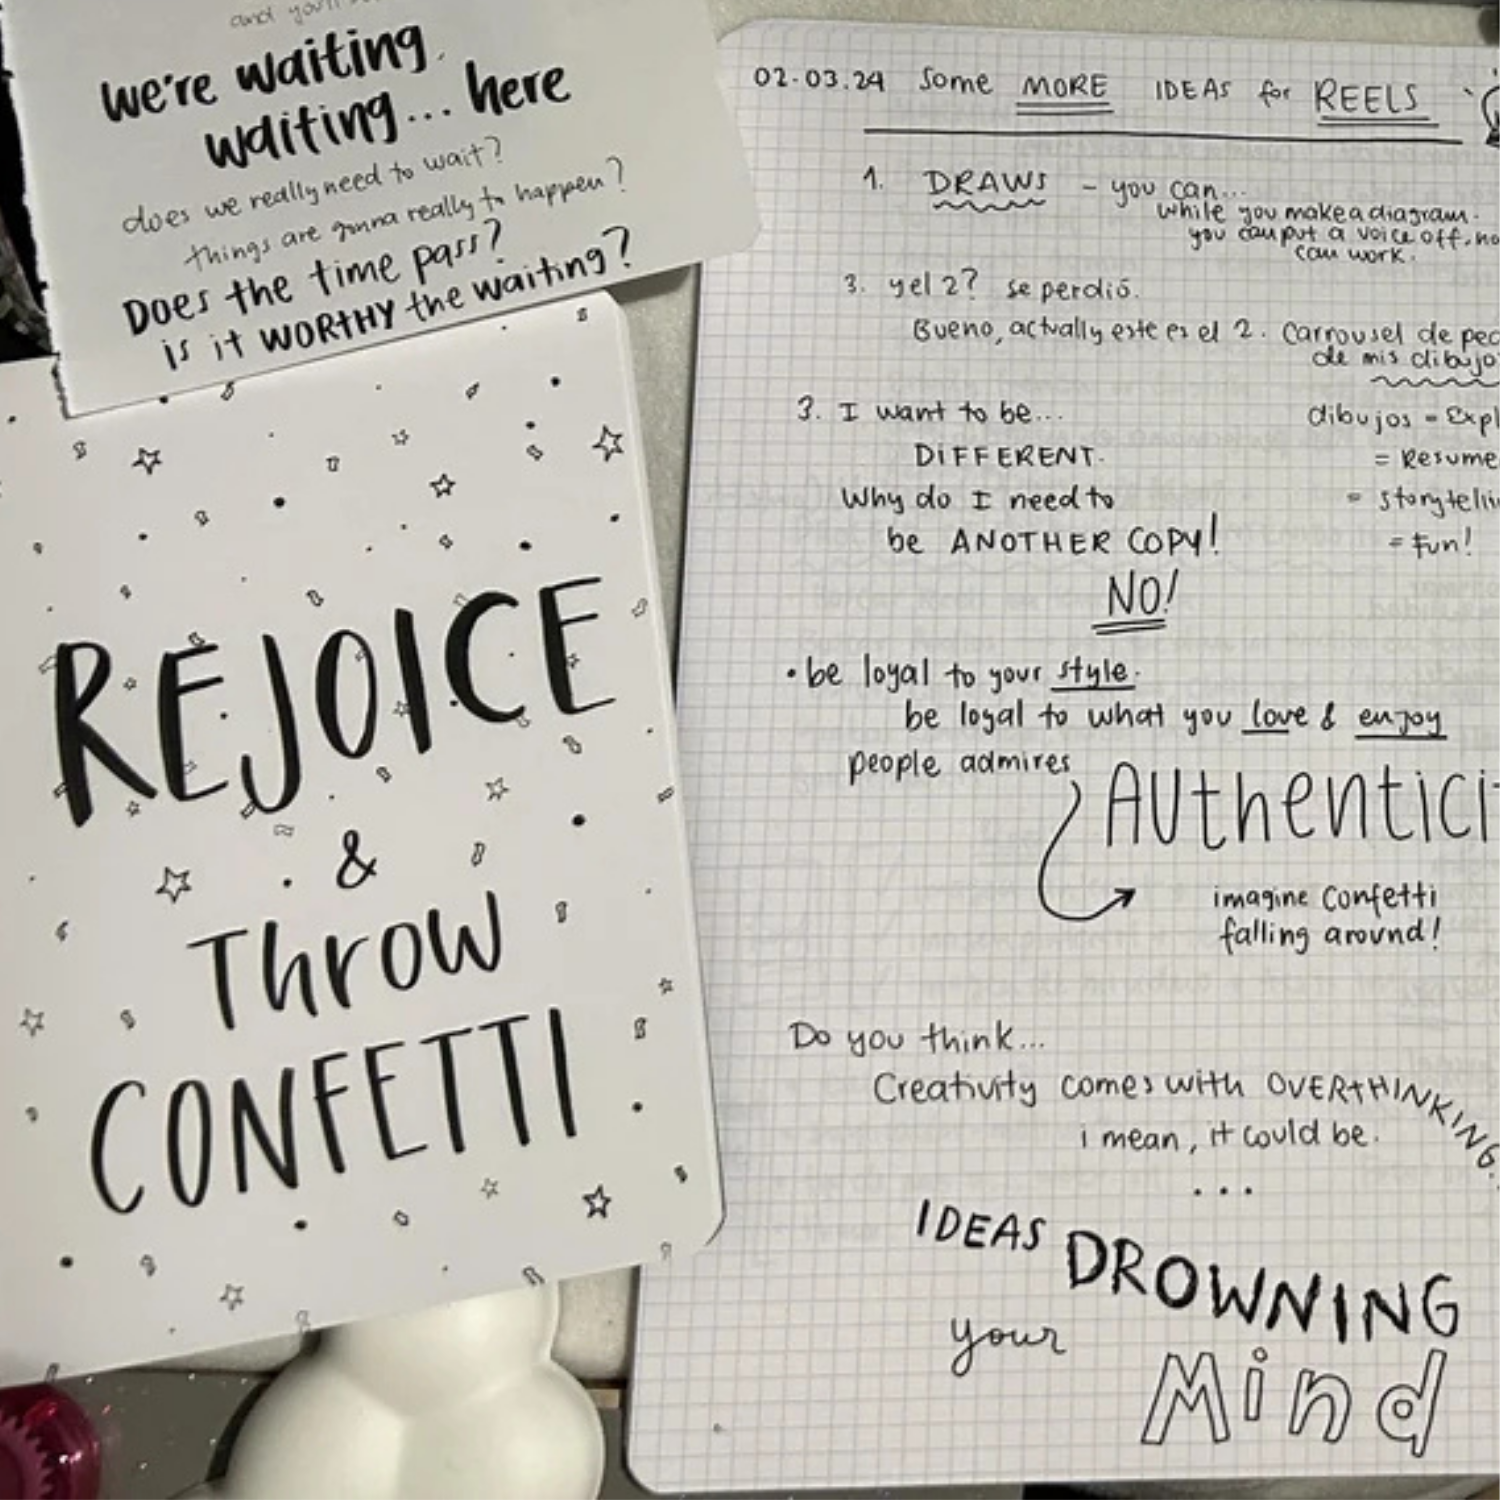 and you'll
we're waiting.
waiting... here
does we really need to wait?
things are gonna really to happen?
Does the time pass?
is it WORTHY the waiting?
REJOICE
&
Throw
CONFETTI
02.03.24 Some MORE IDEAS for REELS
1. DRAWS - you can...
while you make a diagram.
you can put a voice off, no
can work.
3. y el 2? se perdió.
Bueno, actually este es el 2. Carrousel de
de mis dibujo
3. I want to be...
DIFFERENT.
Why do I need to
be ANOTHER COPY!
NO!
dibujos = Expl
= Resume
= storytelli
= Fun!
• be loyal to your style.
be loyal to what you love & enjoy
people admires
AUthentici
imagine Confetti
falling around!
Do you think...
Creativity comes with OVERTHINKING.
i mean, it could be.
...
IDEAS DROWNING
your Mind